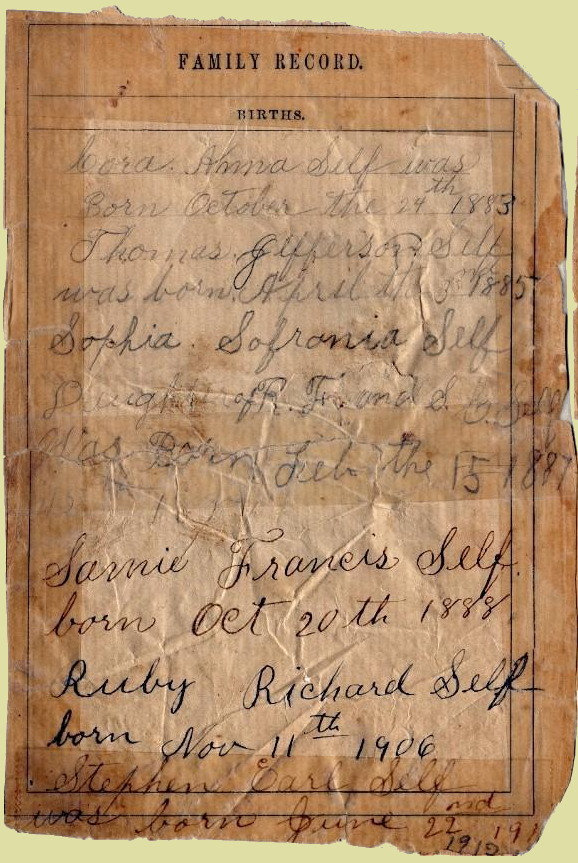 FAMILY RECORD.
BIRTHS.
Cora. Anna Self was
Born October the 24th 1883
Thomas. Jefferson Self
was born. April the 3rd 1885
Sophia. Sofronia Self
Daughter of R. F. and S. E. Self
Was Born Feb the 15 1887
Samie Francis Self.
born Oct 20th 1888
Ruby Richard Self
born Nov 11th 1906
Stephen Earl Self
was born June 22nd 191
1910